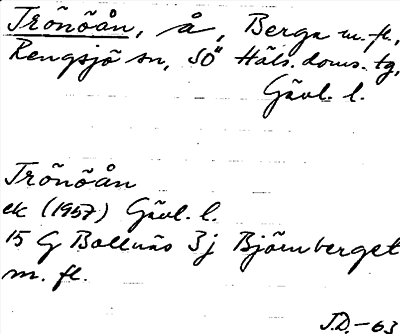 Trönöån, å, Berga m. fl.,
Rengsjö sn, SÖ Häls. doms. tg,
Gävl. l.
Trönöån
ek (1957) Gävl. l.
15 G Bollnäs 3j Björnberget
m. fl.
J.D.-63